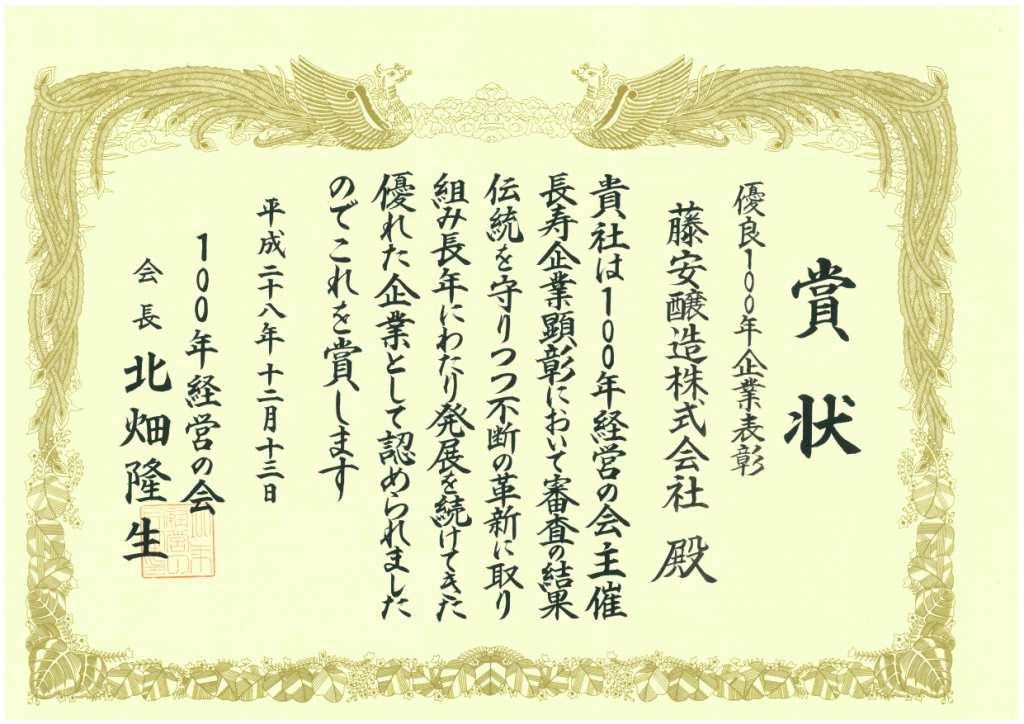 賞状
優良100年企業表彰
藤安醸造株式会社 殿
貴社は100年経営の会主催
長寿企業顕彰において審査の結果
伝統を守りつつ不断の革新に取り
組み長年にわたり発展を続けてきた
優れた企業として認められました
のでこれを賞します
平成二十八年十二月十三日
100年経営の会
会長 北畑隆生